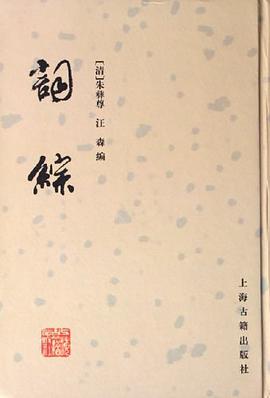 词综
[清]朱彝尊 汪森编
上海古籍出版社